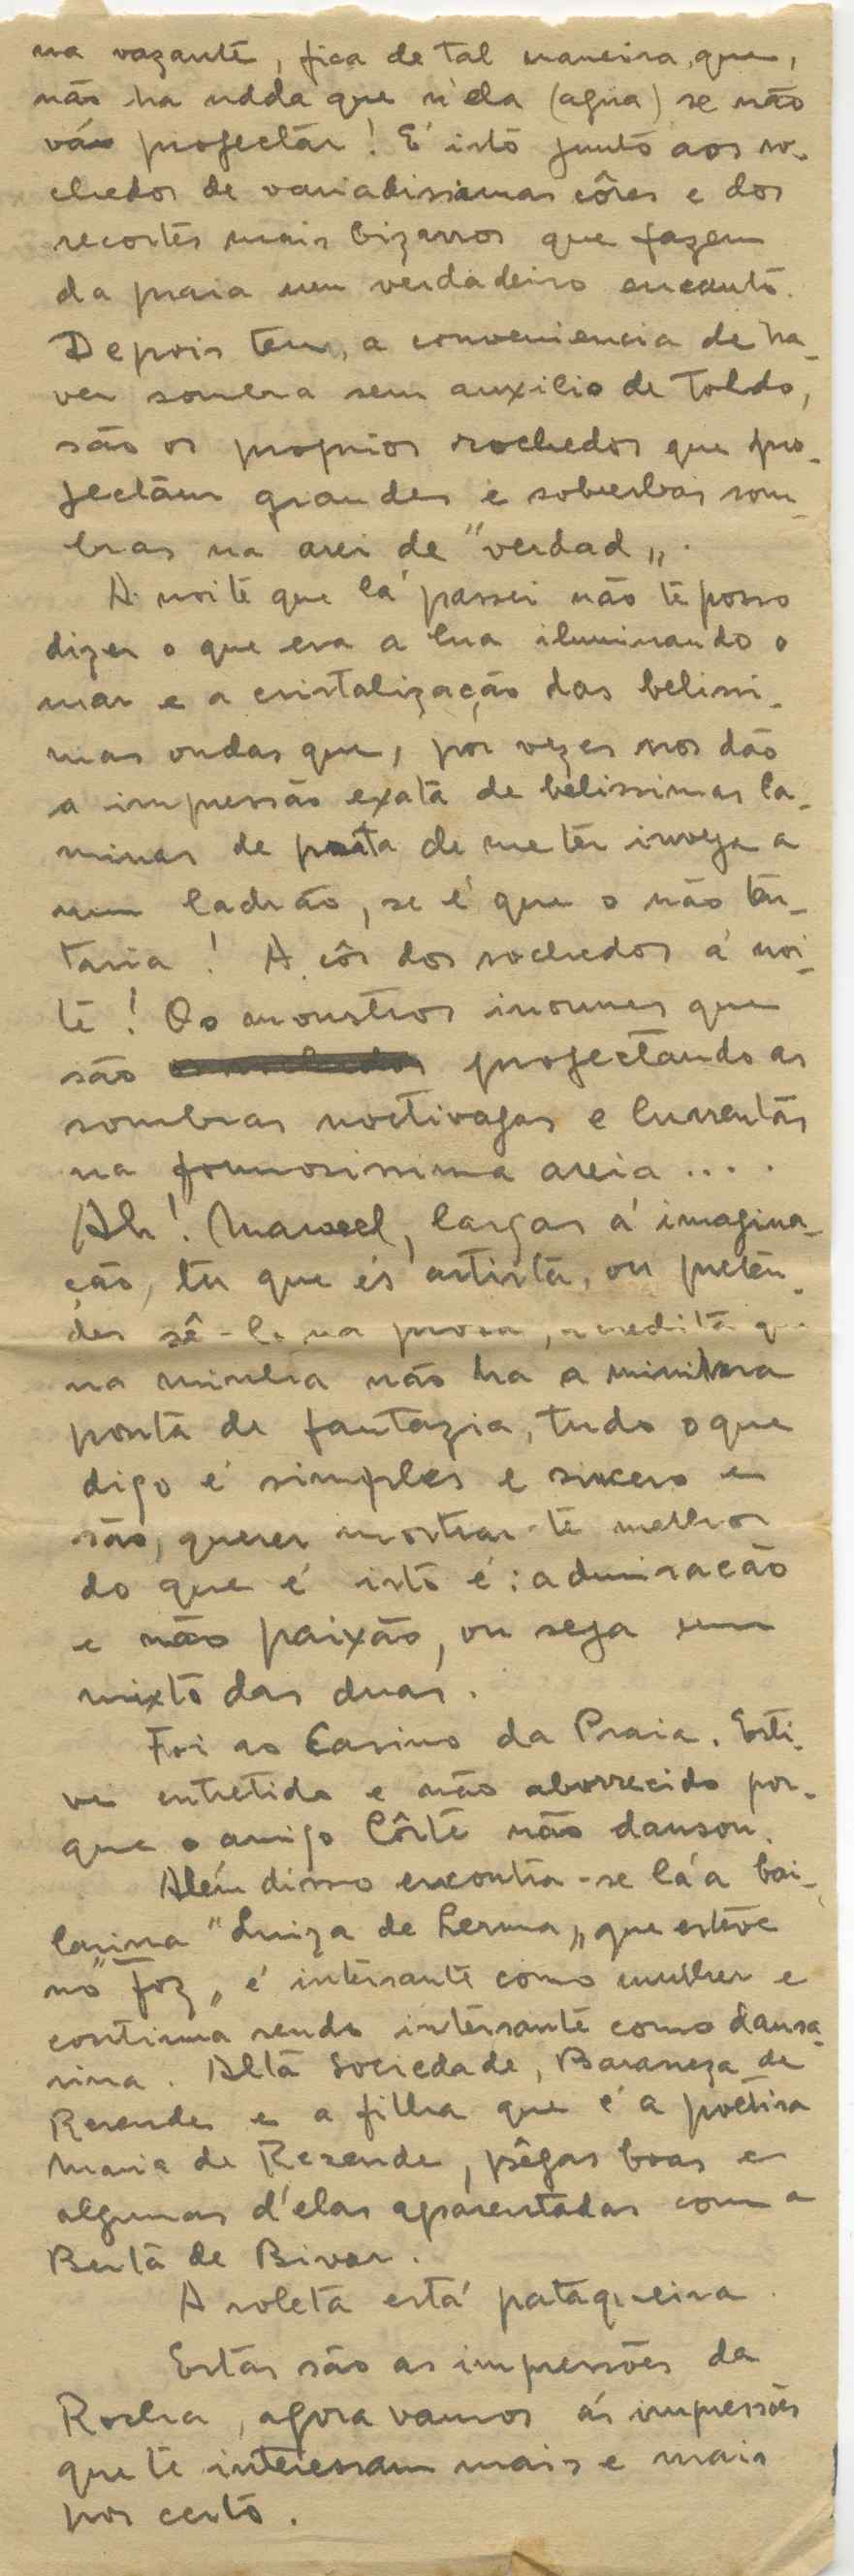 na vazante, fica de tal maneira, que,
não ha nada que n'ela (agua) se não
vão projectar! E' isto junto aos ro-
chedos de variadissimas côres e dos
recortes mais bizarros que fazem
da praia um verdadeiro encanto.
Depois tem, a conveniencia de ha-
ver sombra sem auxilio de Toldo,
são os proprios rochedos que pro-
jectam grandes e soberbas som-
bras na arei de "verdad".
A noite que lá passei não te posso
dizer o que era a lua iluminando o
mar e a cristalização das belissi-
mas ondas que, por vezes nos dão
a impressão exata de belissimas la-
minas de prata de meter inveja a
um ladrão, se é que o não ten-
taria! A côr dos rochedos á noi-
te! Os monstros inormes que
são projectando as
sombras noctivagas e
na formosissima areia....
Ah! Manoel, largas á imagina-
ção, tu que és artista, ou preten-
des sê-lo na prosa, acredita que
na minha não ha a minima
ponta de fantazia, tudo o que
digo é simples e sincero e
são, querer mostrar-te melhor
do que é isto é: admiração
e não paixão, ou seja um
mixto das duas.
Foi ao Casino da Praia. Esti-
ve entretido e não aborrecido por-
que o amigo Côrte não dansou.
Alem disso encontra-se lá a bai-
larina "Luiza de Lerma" que esteve
no "Foz", é intersante como mulher e
continua sendo intersante como dansa-
rina. Alta Sociedade, Baroneza de
Resende e a filha que é a poetisa
Maria de Rezende, pêgas boas e
algumas d'elas aparentadas com a
Berta de Bivar.
A roleta está pataqueira.
Estas são as impressões da
Rocha, agora vamos ás impressões
que te interessam mais e mais
por certo.